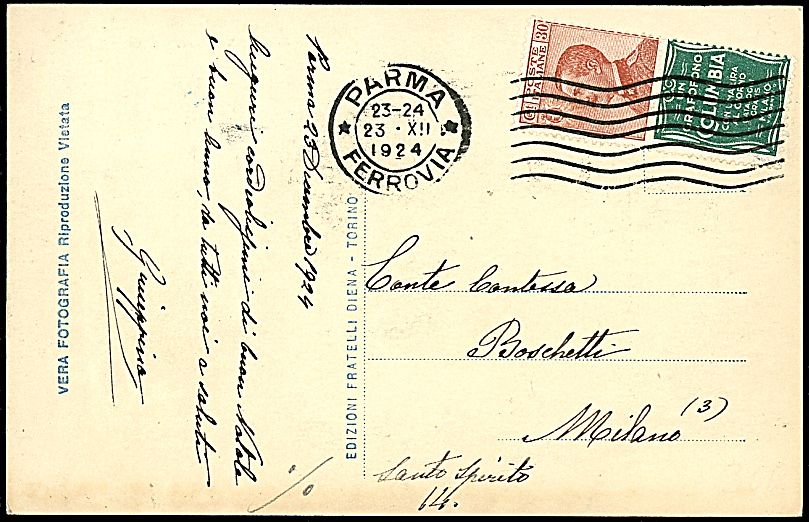 VERA FOTOGRAFIA Riproduzione Vietata
Parma 23 Dicembre 1924
Auguri cordialissimi di buon Natale
e buon anno, da tutti noi a saluti
Giuseppina
PARMA
23-24
23 · XII
1924
FERROVIA
POSTE
ITALIANE
30
GRAFOFONO
COLUMBIA
MILANO
EDIZIONI FRATELLI DIENA - TORINO
Conte Contessa
Boschetti
Milano (3)
Santo Spirito
14.